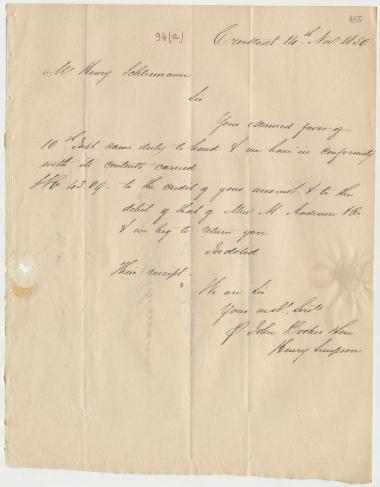 455
94(a)
Cronstadt 14th Nov. 1850
Mr Henry Schliemann
Sir
Your esteemed favor of
10th Inst came duly to hand & we have in conformity
with its contents carried
45.09 to the credit of your account & to the
debit of that of Messrs M.
& we beg to return you
Inclosed
Their receipt.
We are Sir
Your most. Servts
John Booker
Henry Simpson